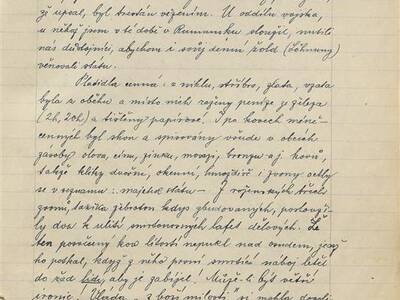 že upsal, byl trestán vězením. U oddílu vojska,
u něhož jsem v té době v Rumunsku sloužil, nutili
nás důstojníci, abychom i svůj denní žold (Löhnung)
věnovali státu.
Platidla cenná: z niklu, stříbra, zlata, vzata
byla z oběhu a místo nich raženy peníze ze železa
(2h, 20h) a tištěny papírové. I po kovech méně-
cenných byl shon a zpisovány všude v obcích
zásoby olova, cínu, zinku, mosazi, bronzu aj. kovů,
takže kliky dveřní, okenní, hmoždíř i zvony octly
se v seznamu: majetek státu. – I vojenských třech
zvonů, takřka zčeboten kdys zbudovaných, poslouži-
ly dvou k ulití smrtonosných lafet dělových. Že
ten posvěcený kov lítostí nepukl nad osudem, jenž
ho potkal, když z něho první smrtící náboj letěl
do řad lidu, aby je zabíjel! Může-li býti větší
ironie! Vláda z boží milosti si mohla dovoli